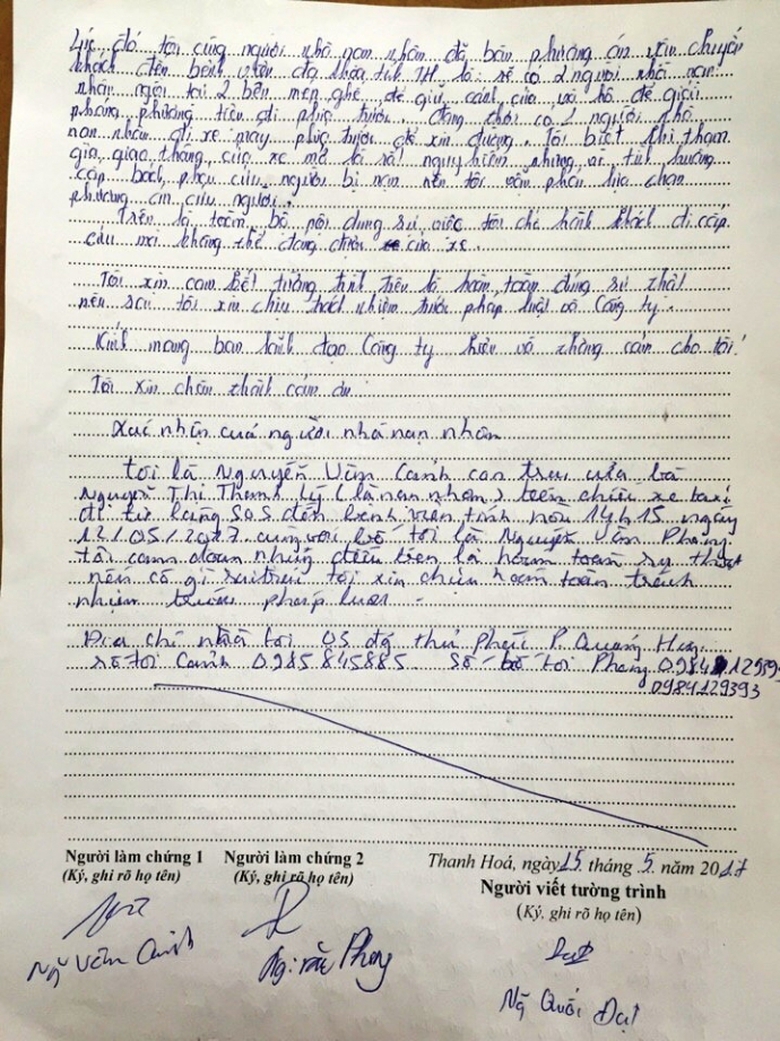 Lúc đó tôi cùng người nhà nạn nhân đã bàn phương án vận chuyển
khách đến bệnh viện đa khoa tỉnh TH là: sẽ có 2 người nhà nạn
nhân ngồi tại 2 bên mép ghế, để giữ cánh cửa và hô để giải
phóng phương tiện đi phía trước. đồng thời có 2 người nhà
nạn nhân đi xe máy phía trước để xin đường. Tôi biết khi tham
gia giao thông cửa xe mở là rất nguy hiểm nhưng vì tình huống
cấp bách, phải cứu người bị nạn nên tôi vẫn phải lựa chọn
phương án cứu người.
Trên là toàn bộ nội dung sự việc tôi chở hành khách đi cấp
cứu mà không thể đóng được cửa xe.
Tôi xin cam kết tường trình trên là hoàn toàn đúng sự thật
nếu sai tôi xin chịu trách nhiệm trước pháp luật và Công ty.
Kính mong ban lãnh đạo Công ty hiểu và thông cảm cho tôi!
Tôi xin chân thành cảm ơn
Xác nhận của người nhà nạn nhân
tôi là Nguyễn Văn Cảnh con trai của bà
Nguyễn Thị Thanh Lý (là nạn nhân) trên chiếc xe taxi
đi từ làng SOS đến bệnh viện tỉnh hồi 14h15 ngày
12/05/2017 cùng với bố tôi là Nguyễn Văn Phong
tôi cam đoan những điều trên là hoàn toàn sự thật
nếu có gì sai trái tôi xin chịu hoàn toàn trách
nhiệm trước pháp luật.
Địa chỉ nhà tôi 05 thư Phúc P. Quảng Hưng
số tôi Cảnh 0985845885 Số bố tôi Phong
0984129393
Người làm chứng 1 Người làm chứng 2 Thanh Hoá, ngày 15 tháng 5 năm 2017
(Ký, ghi rõ họ tên) (Ký, ghi rõ họ tên) Người viết tường trình
(Ký, ghi rõ họ tên)
Ng Văn Cảnh Phong
Ng Quốc Đạt